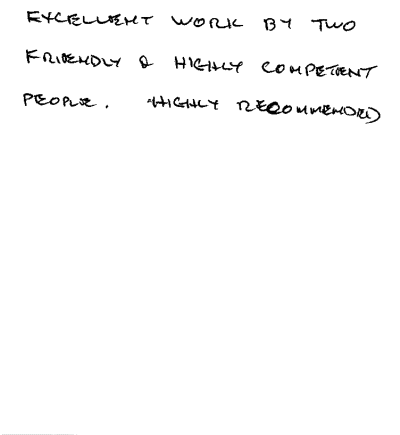 EXCELLENT WORK BY TWO
FRIENDLY & HIGHLY COMPETENT
PEOPLE. HIGHLY RECOMMENDED